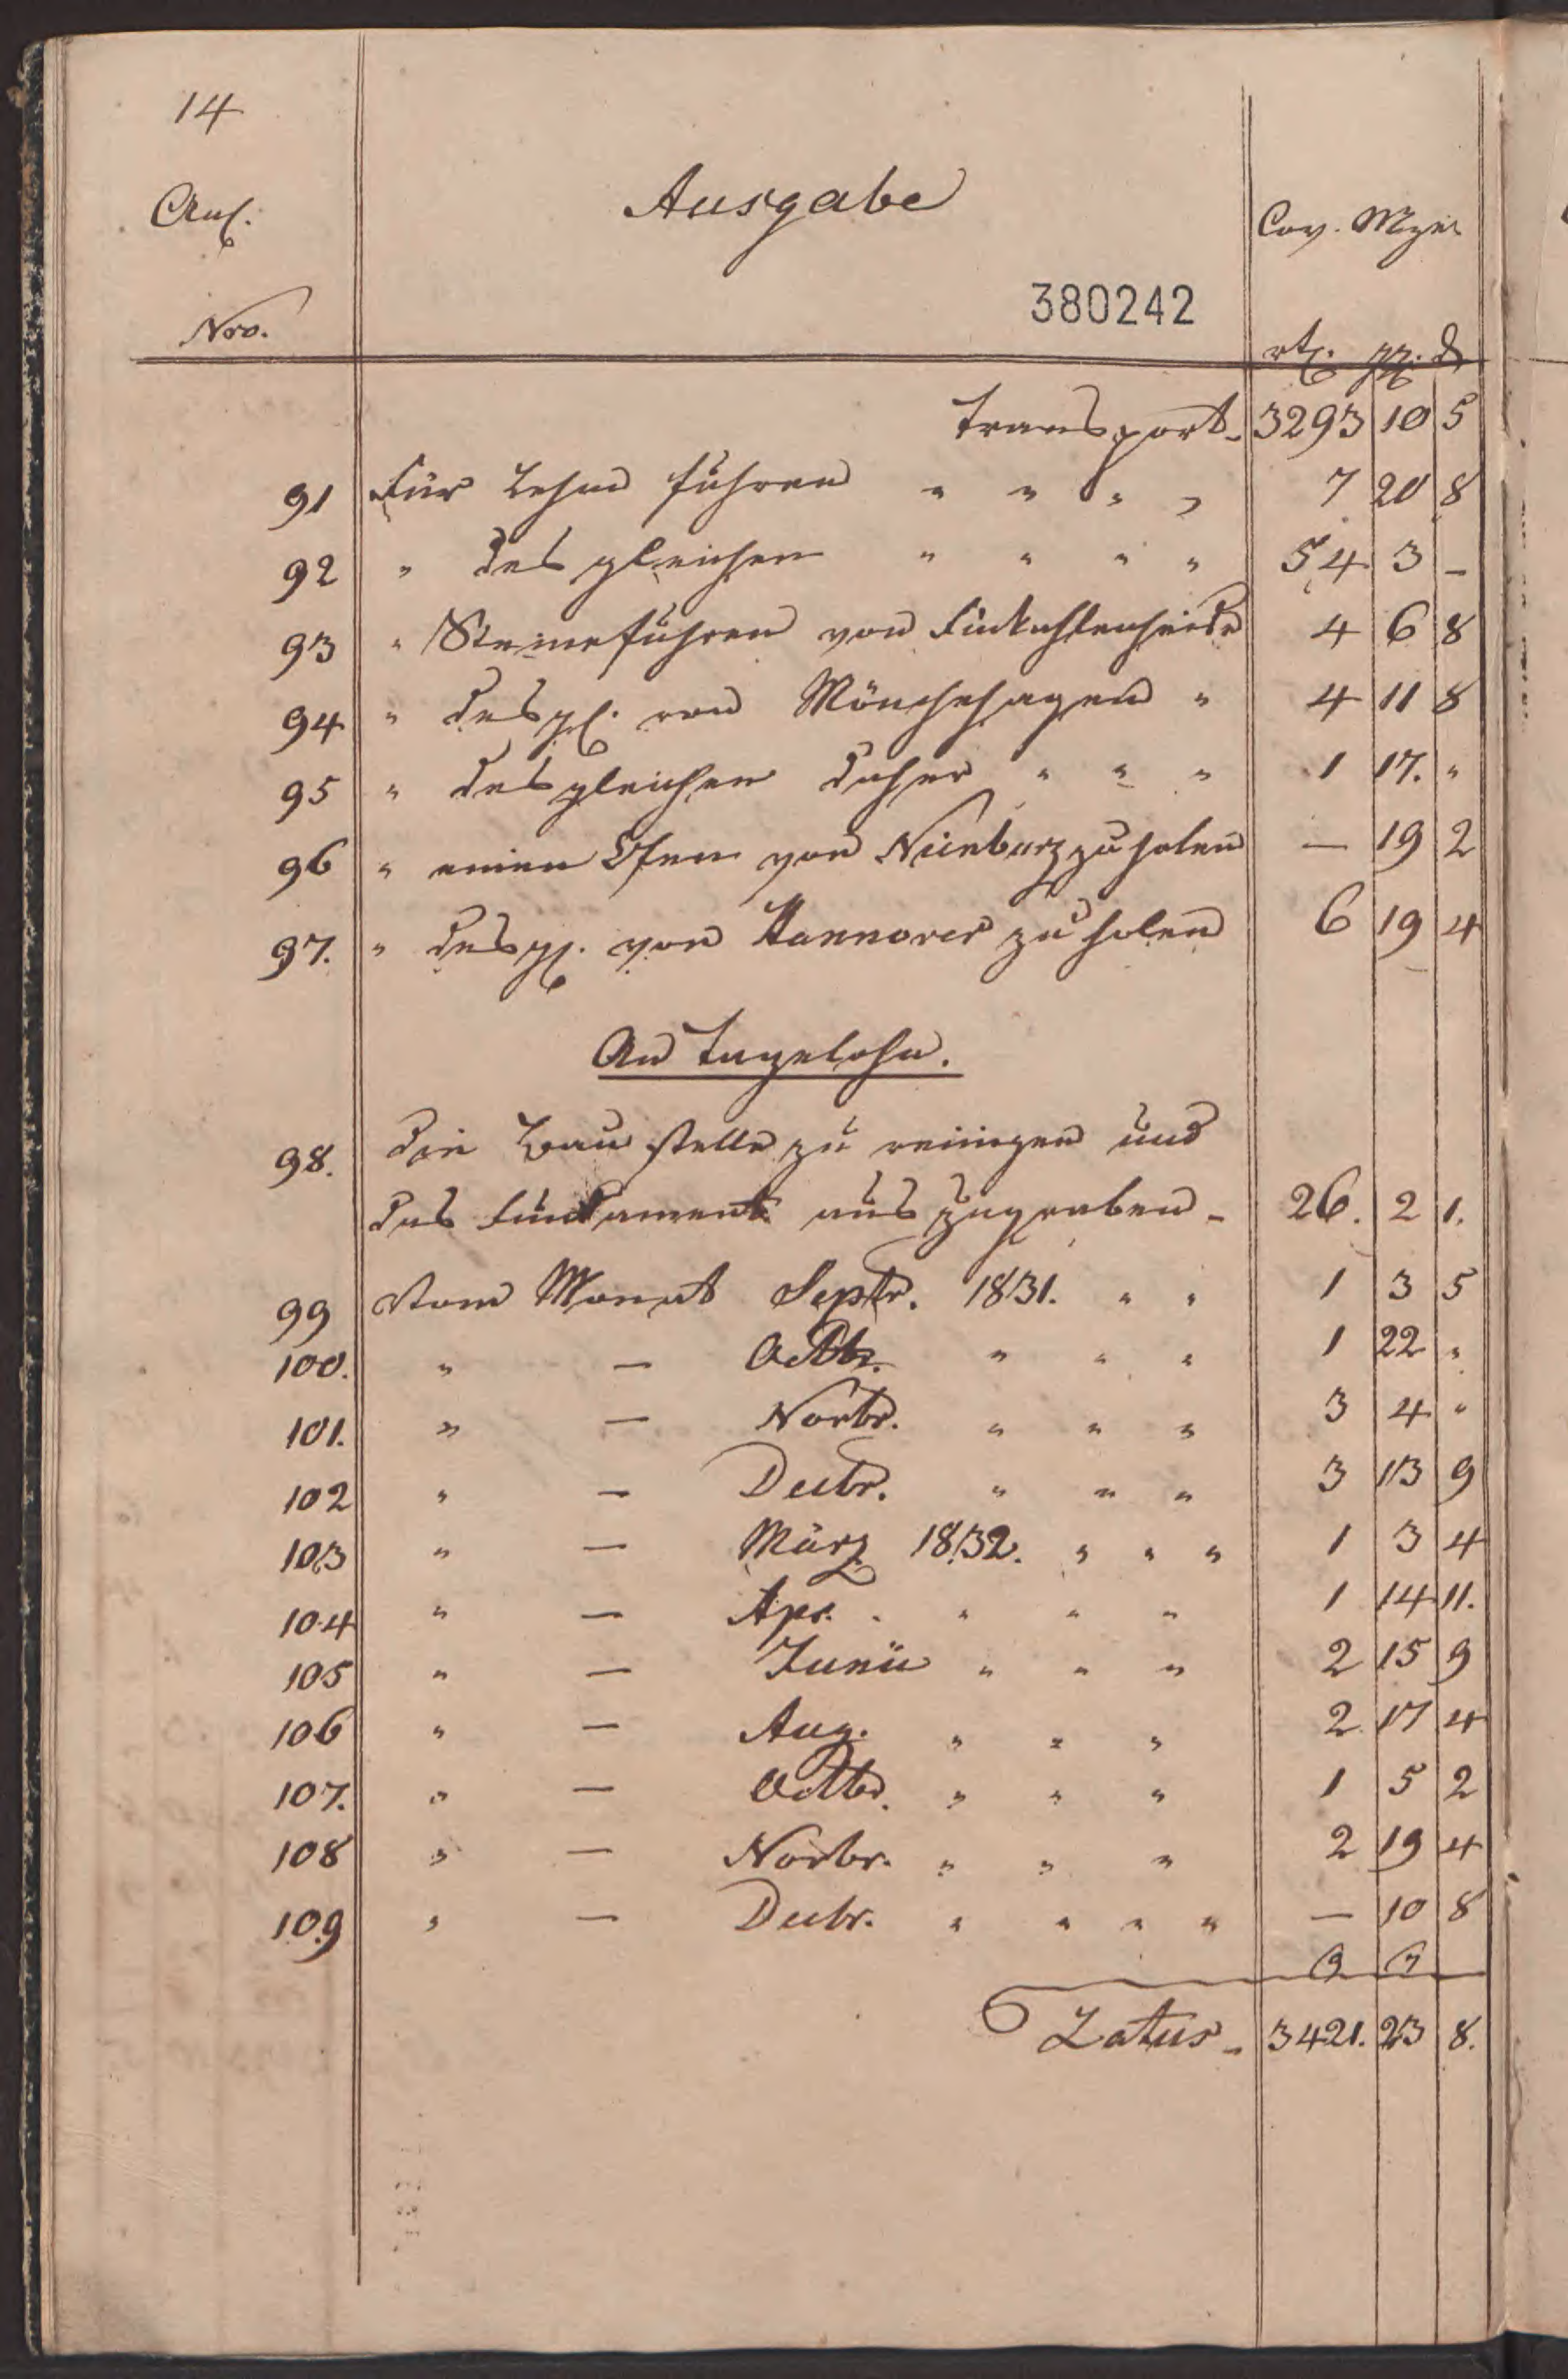 14
Anl. Ausgabe Cov. Mze
380242
Nro. rtl. ggl. d
Transport - 3293 10 5
91 Für Lehm fuhren " " " " 7 20 8
92 " desgleichen " " " " 54 3 -
93 " Steinefuhren von 4 6 8
94 " desgl. von Mönchehagen " 4 11 8
95 " desgleichen daher " " " 1 17. "
96 " einen Ofen von Nienburg zu holen — 19 2
97. " desgl. von Hannover zu holen 6 19 4
An Tagelohn.
98. Die Baustelle zu reinigen und
das Fundament auszugraben - 26. 2 1.
99 Vom Monat Septr. 1831. " " 1 3 5
100. " — Octbr. " " " 1 22 "
101. " — Novbr. " " " 3 4 "
102 " — Decbr. " " " 3 13 9
103 " — März 1832. " " " 1 3 4
104 " — Apr. " " " " 1 14 11.
105 " — Junii " " " 2 15 9
106 " — Aug. " " " 2 17 4
107. " — Octbr. " " " 1 5 2
108 " — Novbr. " " " 2 19 4
109 " — Decbr. " " " " — 10 8
Latus - 3421. 23 8.